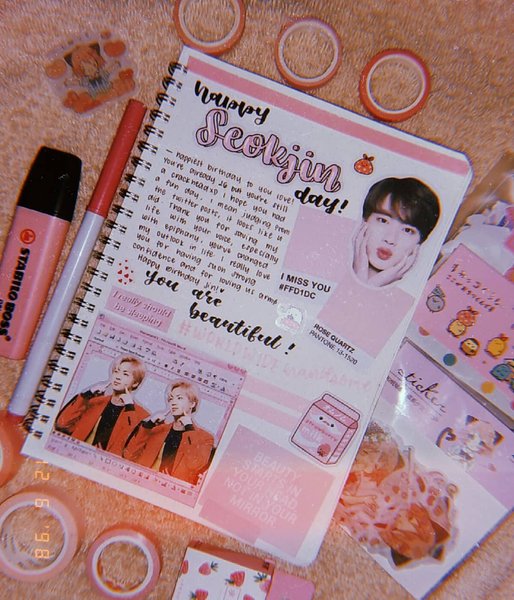 happy
Seokjin
day!
- happiest birthday to you love!
You're already 28 but you're still
a crackhead! I hope you had
a fun day, I mean judging from
the twitter posts, it looks like you
did. Thank you for saving my
life with your voice, especially
with epiphany, you've changed
my outlook in life. I really love
you for having such strong
confidence and for loving us army.
Happy Birthday Jin!
You are
beautiful!
I MISS YOU
#FFD1DC
ROSE QUARTZ
PANTONE 13-1520
I really should
be sleeping
BEAUTY
STARTS IN
YOUR HEAD
NOT YOUR
MIRROR.
STABILO BOSS
sticker